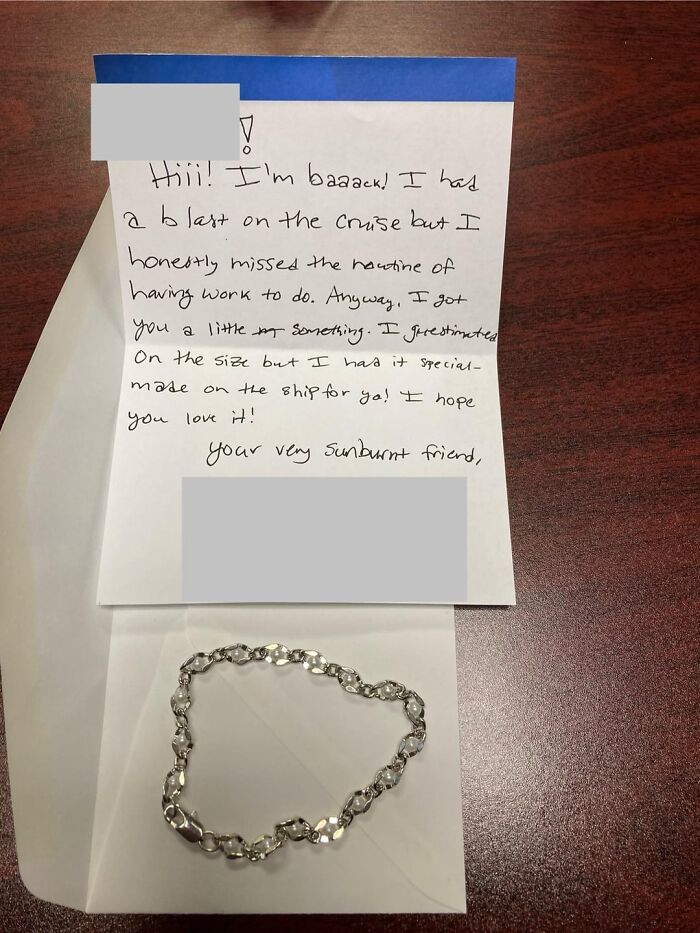 !
Hiii! I'm baaack! I had
a blast on the cruise but I
honestly missed the routine of
having work to do. Anyway, I got
you a little something. I guestimated
on the size but I had it special-
made on the ship for ya! I hope
you love it!
your very sunburnt friend,